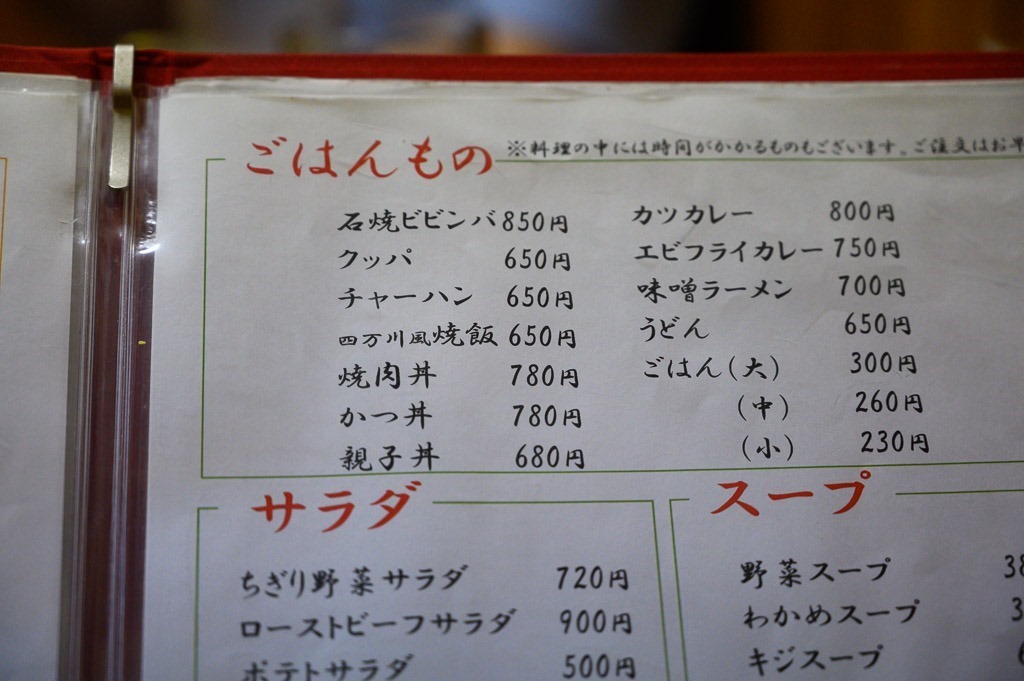 ごはんもの
※料理の中には時間がかかるものもございます。ご注文はお早
石焼ビビンバ 850円
クッパ 650円
チャーハン 650円
四万川風焼飯 650円
焼肉丼 780円
かつ丼 780円
親子丼 680円
カツカレー 800円
エビフライカレー 750円
味噌ラーメン 700円
うどん 650円
ごはん(大) 300円
(中) 260円
(小) 230円
サラダ
ちぎり野菜サラダ 720円
ローストビーフサラダ 900円
ポテトサラダ 500円
スープ
野菜スープ 38
わかめスープ 3
キジスープ